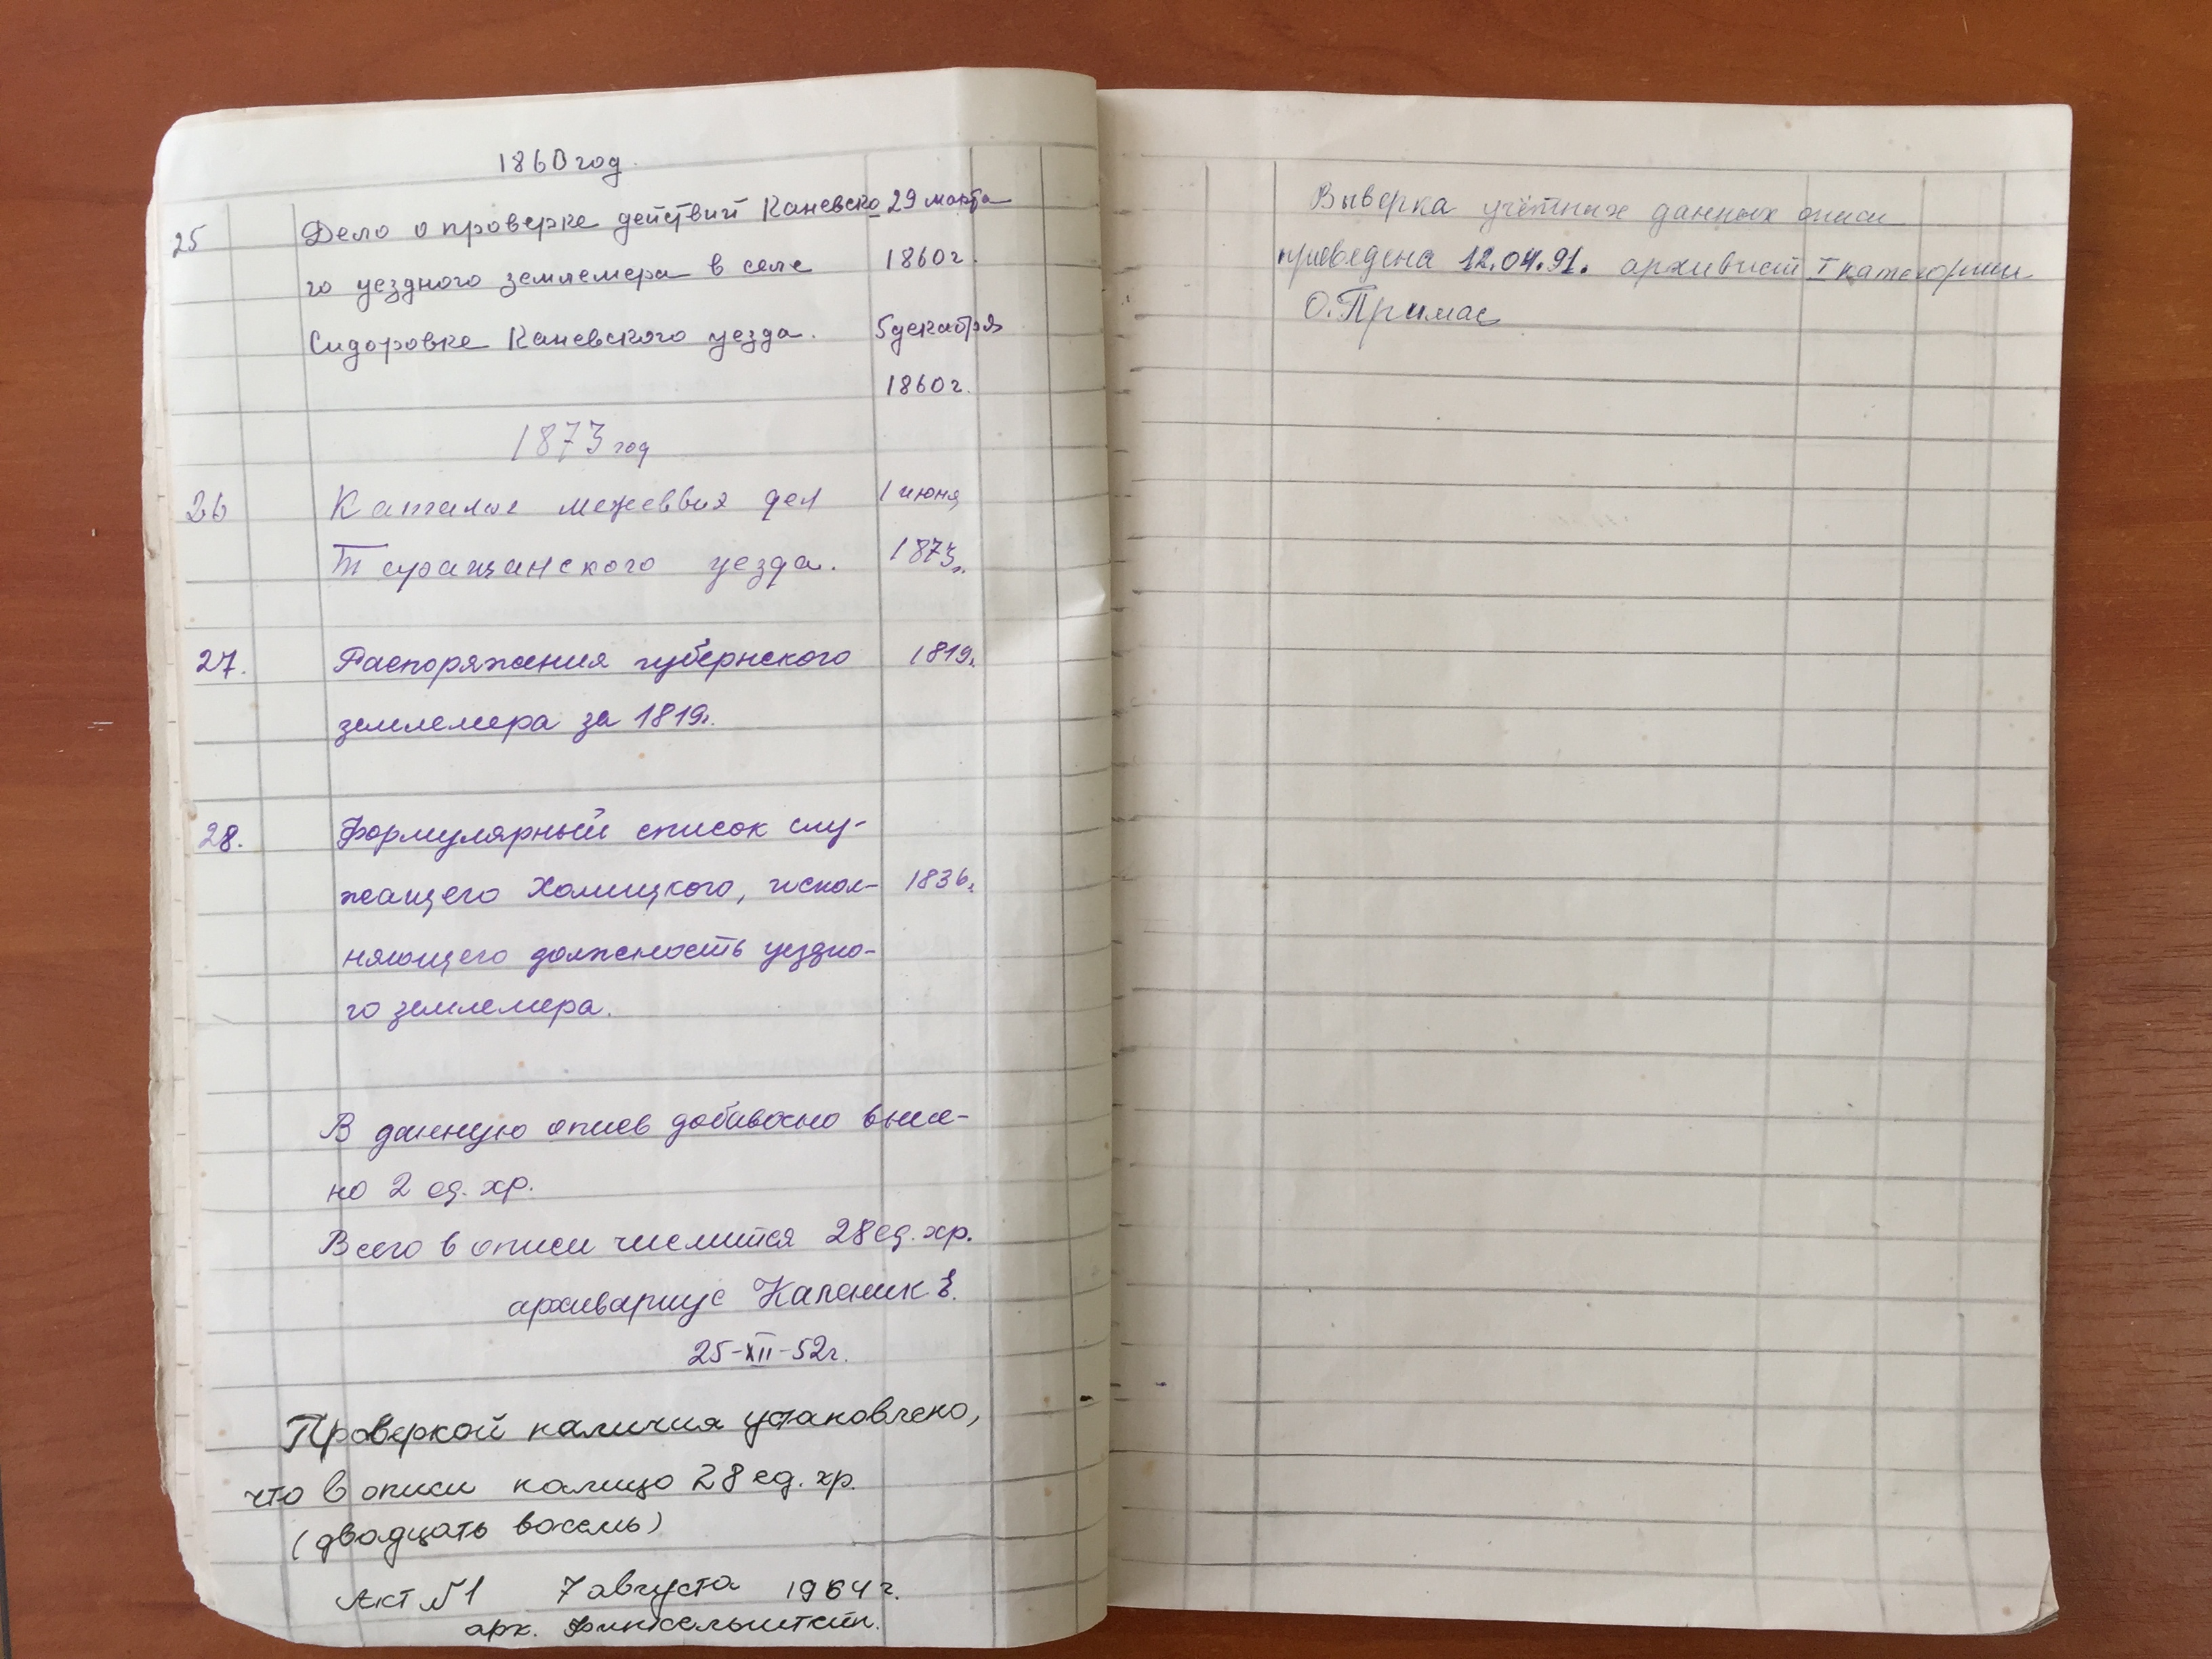 1860 год.
25 Дело о проверке действий Каневско- 29 марта
го уездного землемера в селе 1860г.
Сидоровке Каневского уезда. 5 декабря
1860г.
1873 год
26 Каталог межевых дел 1 июня
Таращанского уезда. 1873г.
27. Распоряжения губернского 1819г.
землемера за 1819г.
28. Формулярный список слу-
жащего Холицкого, испол- 1836г.
няющего должность уездно-
го землемера.
В данную опись добавочно внесе-
но 2 ед. хр.
Всего в описи числится 28 ед. хр.
архивариус Каленик Е.
25-XII-52г.
Проверкой наличия установлено,
что в описи налицо 28 ед. хр.
(двадцать восемь)
Акт №1 7 августа 1964 г.
арх. Финкельштейн.
Выверка учётных данных описи
приведена 12.04.91. архивист I категории
О. Примас